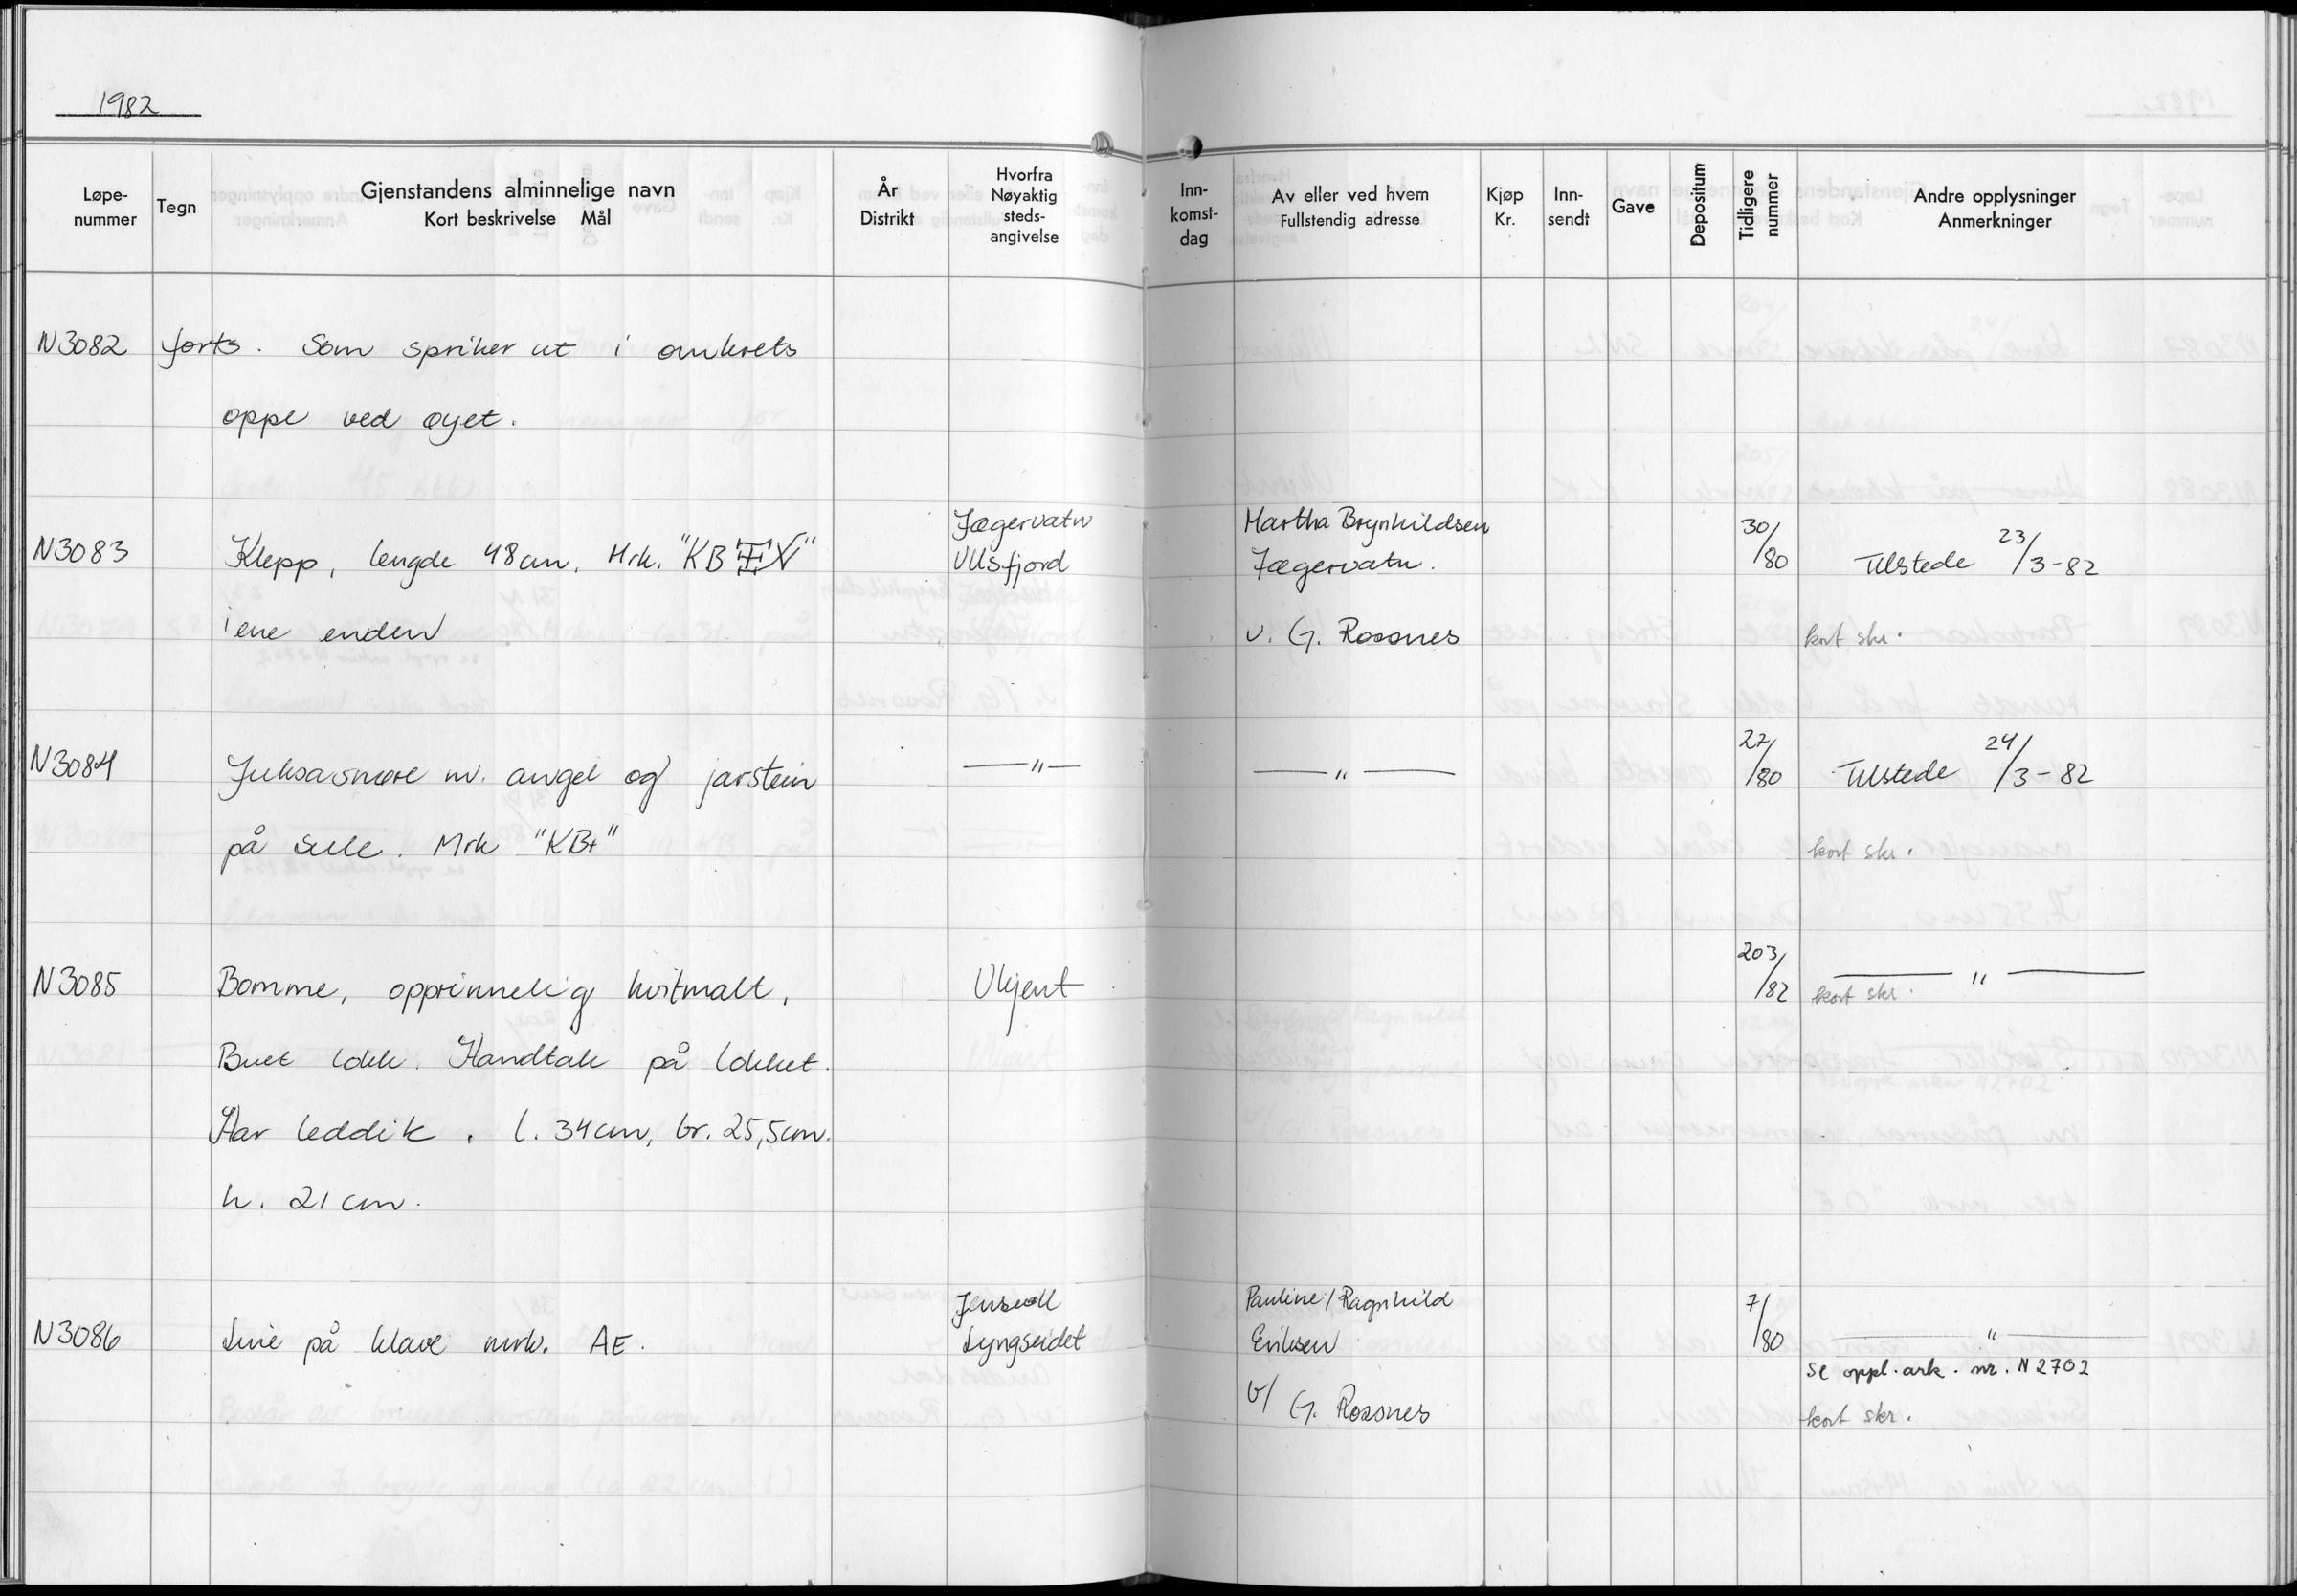 1982
Løpe-nummer Tegn Gjenstandens alminnelige navn Kort beskrivelse Mål År Distrikt Hvorfra Nøyaktig steds-angivelse Inn-komst-dag Av eller ved hvem Fullstendig adresse Kjøp Kr. Inn-sendt Gave Depositum Tidligere nummer Andre opplysninger Anmerkninger
N3082 forts. Som spriker ut i omkrets
oppe ved øyet.
N3083 Klepp, lengde 48cm. Mrk. "KB
i ene enden
Jægervatn
Ullsfjord
Martha Brynhildsen
Jægervatn.
v. G. Rossnes
30/80
Tilstede 23/3-82
kort skr.
N3084 Juksasnøre m. angel og jarstein
på sule. Mrk "KB+"
— " —
— " —
27/80
Tilstede 24/3-82
kort skr.
N3085 Bomme, opprinnelig hvitmalt,
Buet lokk. Handtak på lokket.
Har leddik. l. 34cm, br. 25,5cm.
h. 21 cm.
Ukjent
203/82
— " —
kort skr.
N3086 Line på klave mrk. AE.
Jensvoll
Lyngseidet
Pauline/Ragnhild
Eriksen
v/ G. Rossnes
7/80
— " —
se oppl. ark. nr. N2702
kort skr.